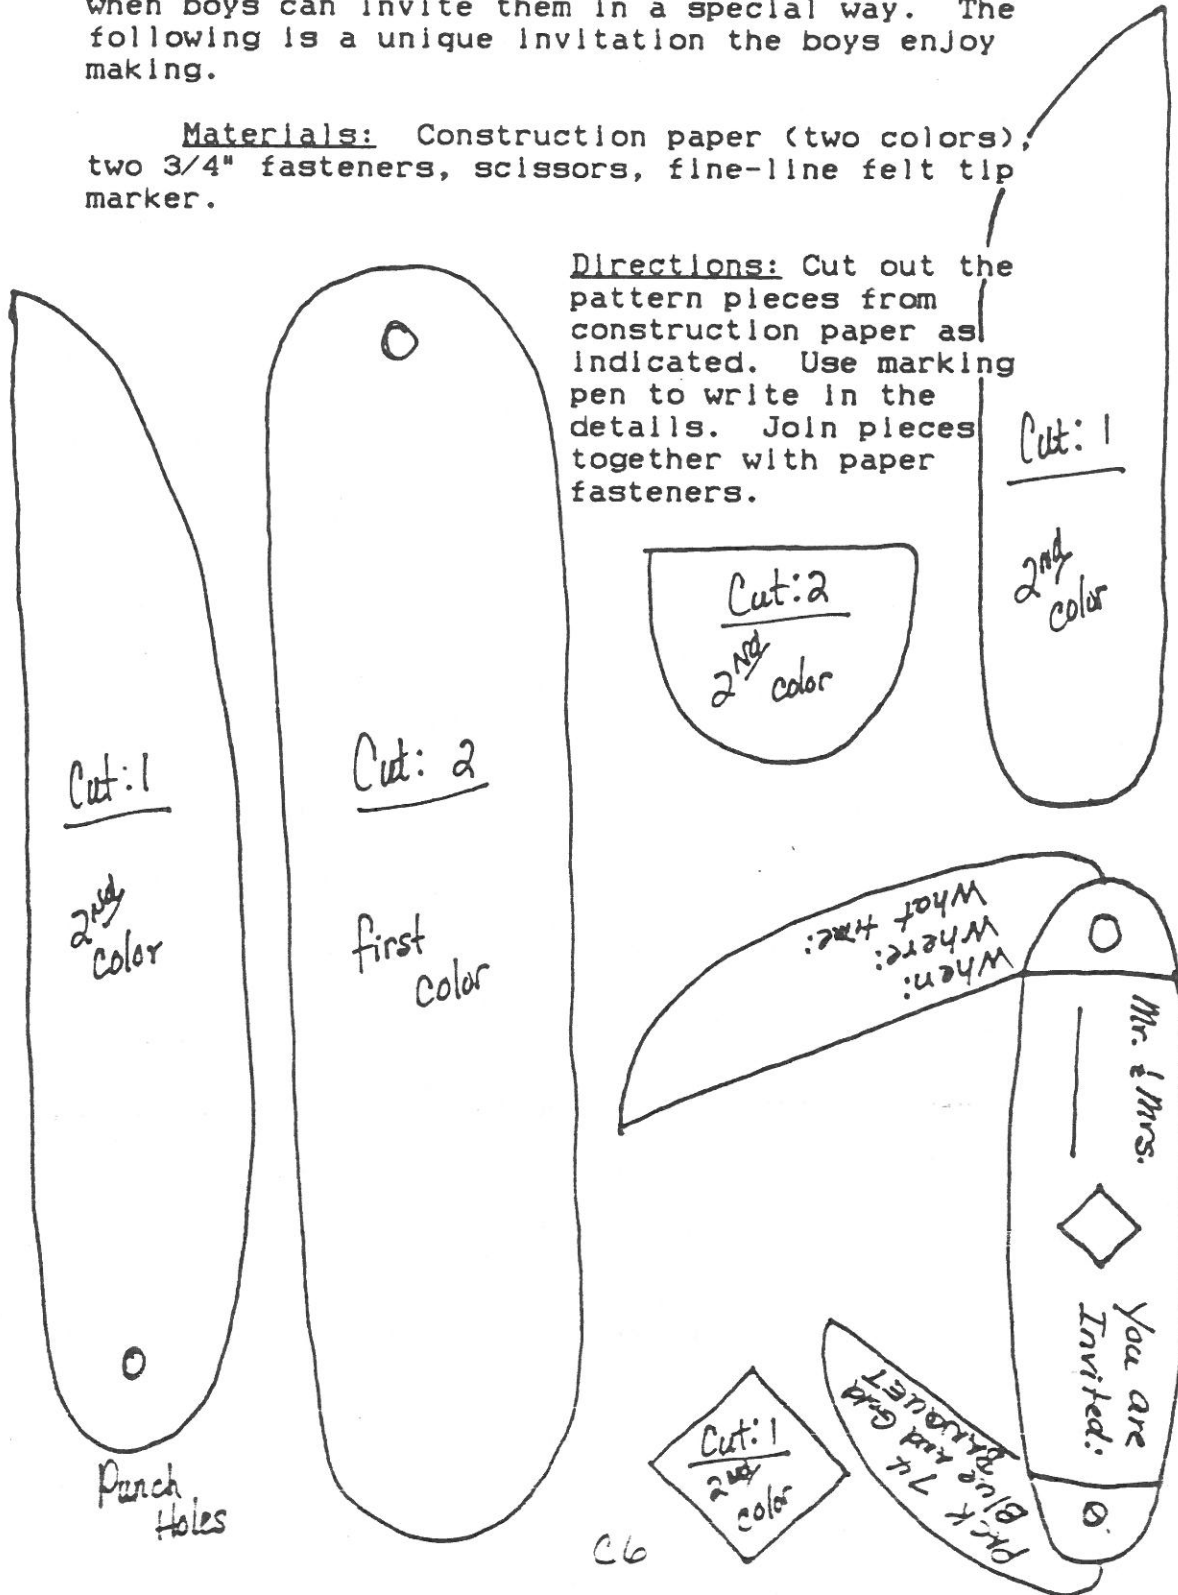 when boys can invite them in a special way. The
following is a unique invitation the boys enjoy
making.
Materials: Construction paper (two colors),
two 3/4" fasteners, scissors, fine-line felt tip
marker.
Directions: Cut out the
pattern pieces from
construction paper as
indicated. Use marking
pen to write in the
details. Join pieces
together with paper
fasteners.
Cut: 1
2nd
color
Cut: 2
2nd
color
Cut: 1
2nd
color
Cut: 2
first
color
When:
Where:
What time:
Mr. & Mrs.
You are
Invited:
Pack 74
Blue and Gold
BANQUET
Cut: 1
2nd
color
Punch
Holes
C6